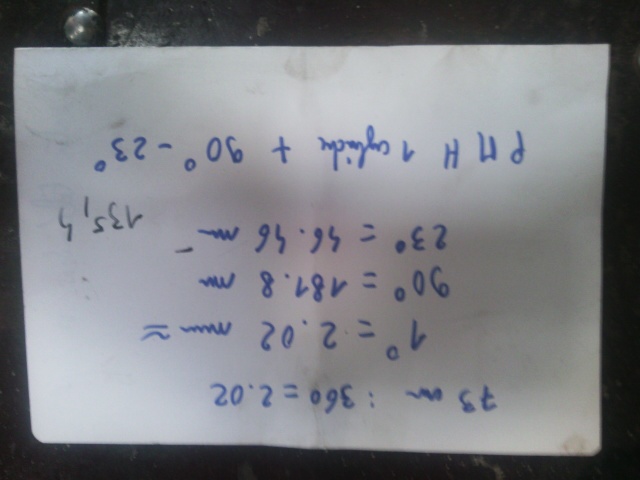 73 cm : 360 = 2.02
1° = 2.02 mm ≃
90° = 181.8 mm
23° = 46.46 mm
135,4
PMH 1 cylindre + 90° - 23°